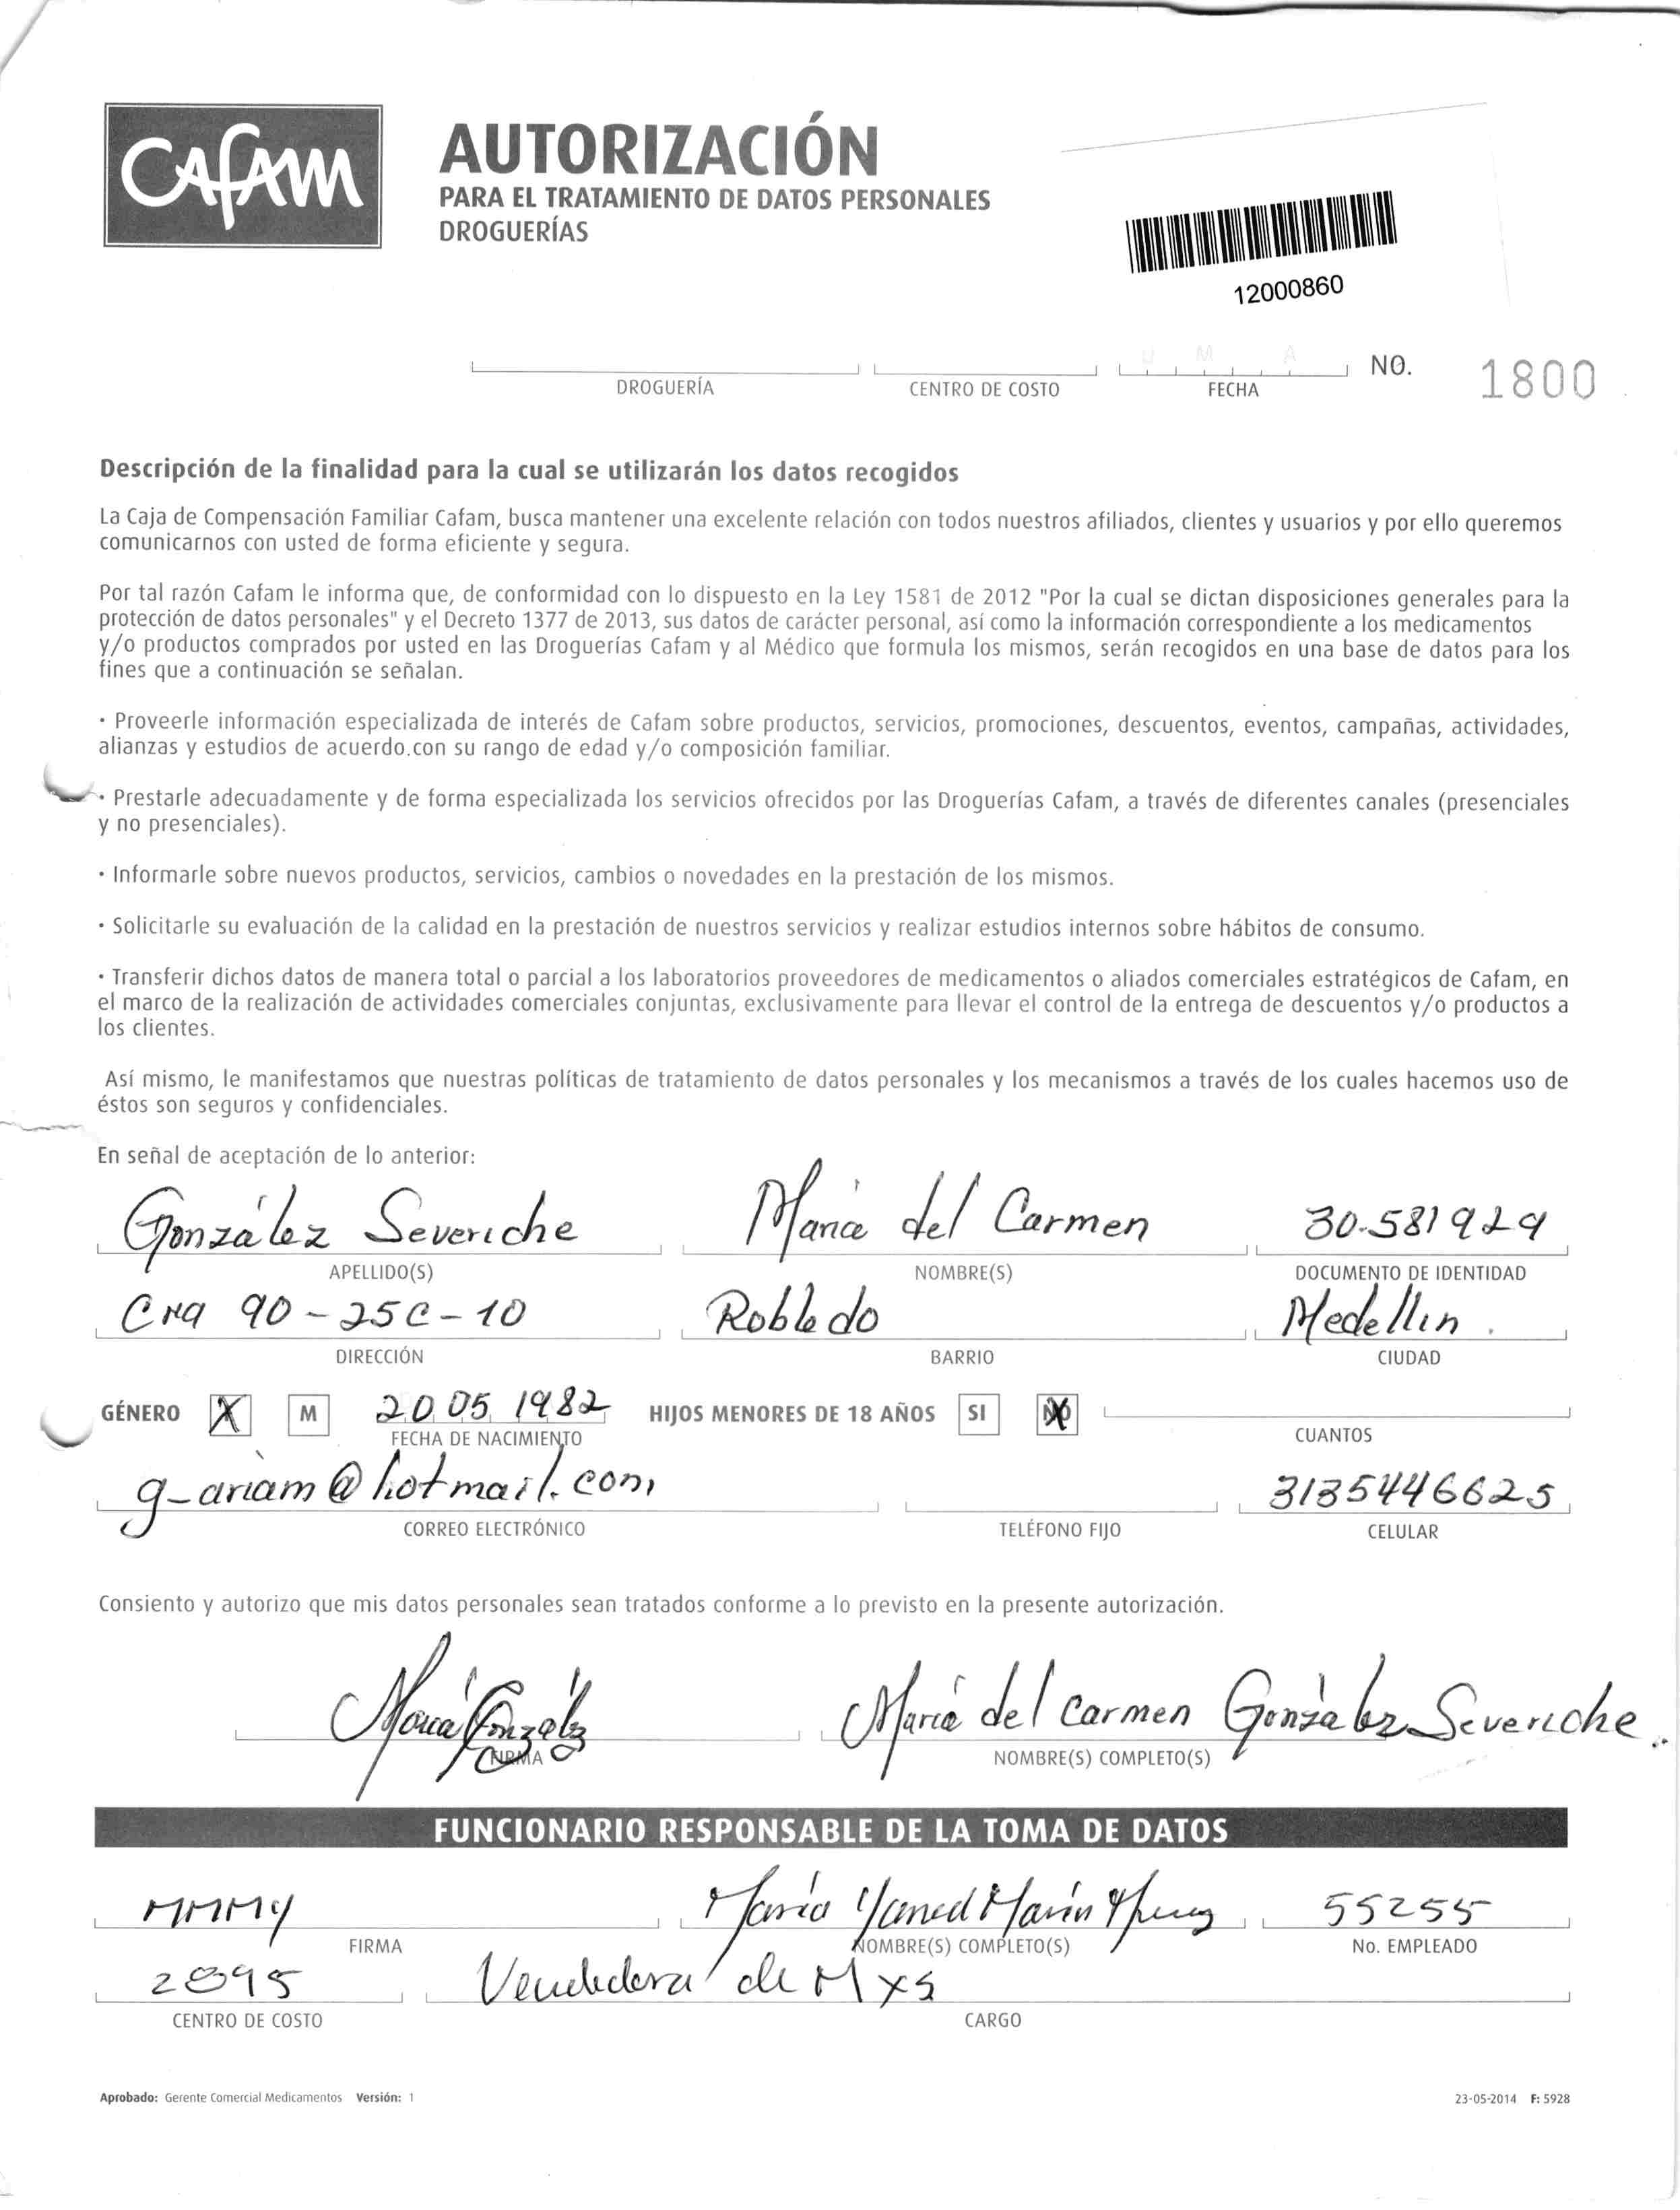 CAFAM
AUTORIZACIÓN
PARA EL TRATAMIENTO DE DATOS PERSONALES
DROGUERÍAS
12000860
D M A
DROGUERÍA CENTRO DE COSTO FECHA NO. 1800
Descripción de la finalidad para la cual se utilizarán los datos recogidos
La Caja de Compensación Familiar Cafam, busca mantener una excelente relación con todos nuestros afiliados, clientes y usuarios y por ello queremos
comunicarnos con usted de forma eficiente y segura.
Por tal razón Cafam le informa que, de conformidad con lo dispuesto en la Ley 1581 de 2012 "Por la cual se dictan disposiciones generales para la
protección de datos personales" y el Decreto 1377 de 2013, sus datos de carácter personal, así como la información correspondiente a los medicamentos
y/o productos comprados por usted en las Droguerías Cafam y al Médico que formula los mismos, serán recogidos en una base de datos para los
fines que a continuación se señalan.
· Proveerle información especializada de interés de Cafam sobre productos, servicios, promociones, descuentos, eventos, campañas, actividades,
alianzas y estudios de acuerdo.con su rango de edad y/o composición familiar.
· Prestarle adecuadamente y de forma especializada los servicios ofrecidos por las Droguerías Cafam, a través de diferentes canales (presenciales
y no presenciales).
· Informarle sobre nuevos productos, servicios, cambios o novedades en la prestación de los mismos.
· Solicitarle su evaluación de la calidad en la prestación de nuestros servicios y realizar estudios internos sobre hábitos de consumo.
· Transferir dichos datos de manera total o parcial a los laboratorios proveedores de medicamentos o aliados comerciales estratégicos de Cafam, en
el marco de la realización de actividades comerciales conjuntas, exclusivamente para llevar el control de la entrega de descuentos y/o productos a
los clientes.
Así mismo, le manifestamos que nuestras políticas de tratamiento de datos personales y los mecanismos a través de los cuales hacemos uso de
éstos son seguros y confidenciales.
En señal de aceptación de lo anterior:
González Severiche María del Carmen 30.581929
APELLIDO(S) NOMBRE(S) DOCUMENTO DE IDENTIDAD
Cra 90-25C-10 Robledo Medellin.
DIRECCIÓN BARRIO CIUDAD
GÉNERO X M 20 05 1982 HIJOS MENORES DE 18 AÑOS SI NO
FECHA DE NACIMIENTO CUANTOS
g-ariam@hotmail.com 3135446625
CORREO ELECTRÓNICO TELÉFONO FIJO CELULAR
Consiento y autorizo que mis datos personales sean tratados conforme a lo previsto en la presente autorización.
María González María del Carmen González Severiche
FIRMA NOMBRE(S) COMPLETO(S)
FUNCIONARIO RESPONSABLE DE LA TOMA DE DATOS
MMMY María Yaned Marín 55255
FIRMA NOMBRE(S) COMPLETO(S) No. EMPLEADO
2895 Vendedora de Mxs
CENTRO DE COSTO CARGO
Aprobado: Gerente Comercial Medicamentos Versión: 1 23-05-2014 F: 5928